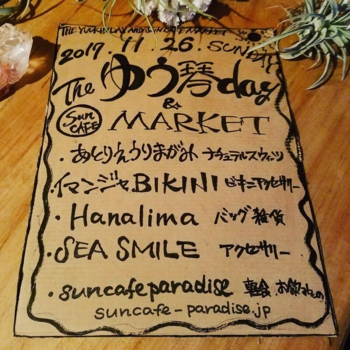 2017.11.26.SUNDAY
The ゆう琴day
&
Sun CAFE MARKET
・あとりえうりまがみ ナチュラルスウィーツ
・イマンジャBIKINI ビキニアクセサリー
・Hanalima バッグ 雑貨
・SEA SMILE アクセサリー
・suncafe paradise 軽食 お飲みもの
suncafe-paradise.jp